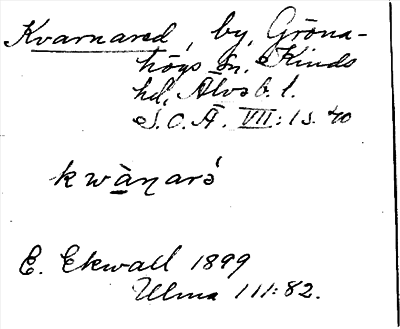 Kvarnared, by, Gröna-
högs sn. Kinds
hd, Älvsb. l.
S.O.Ä. VII:1 s. 40
kwàn̨arə́
E. Ekwall 1899
Ulma 111:82.